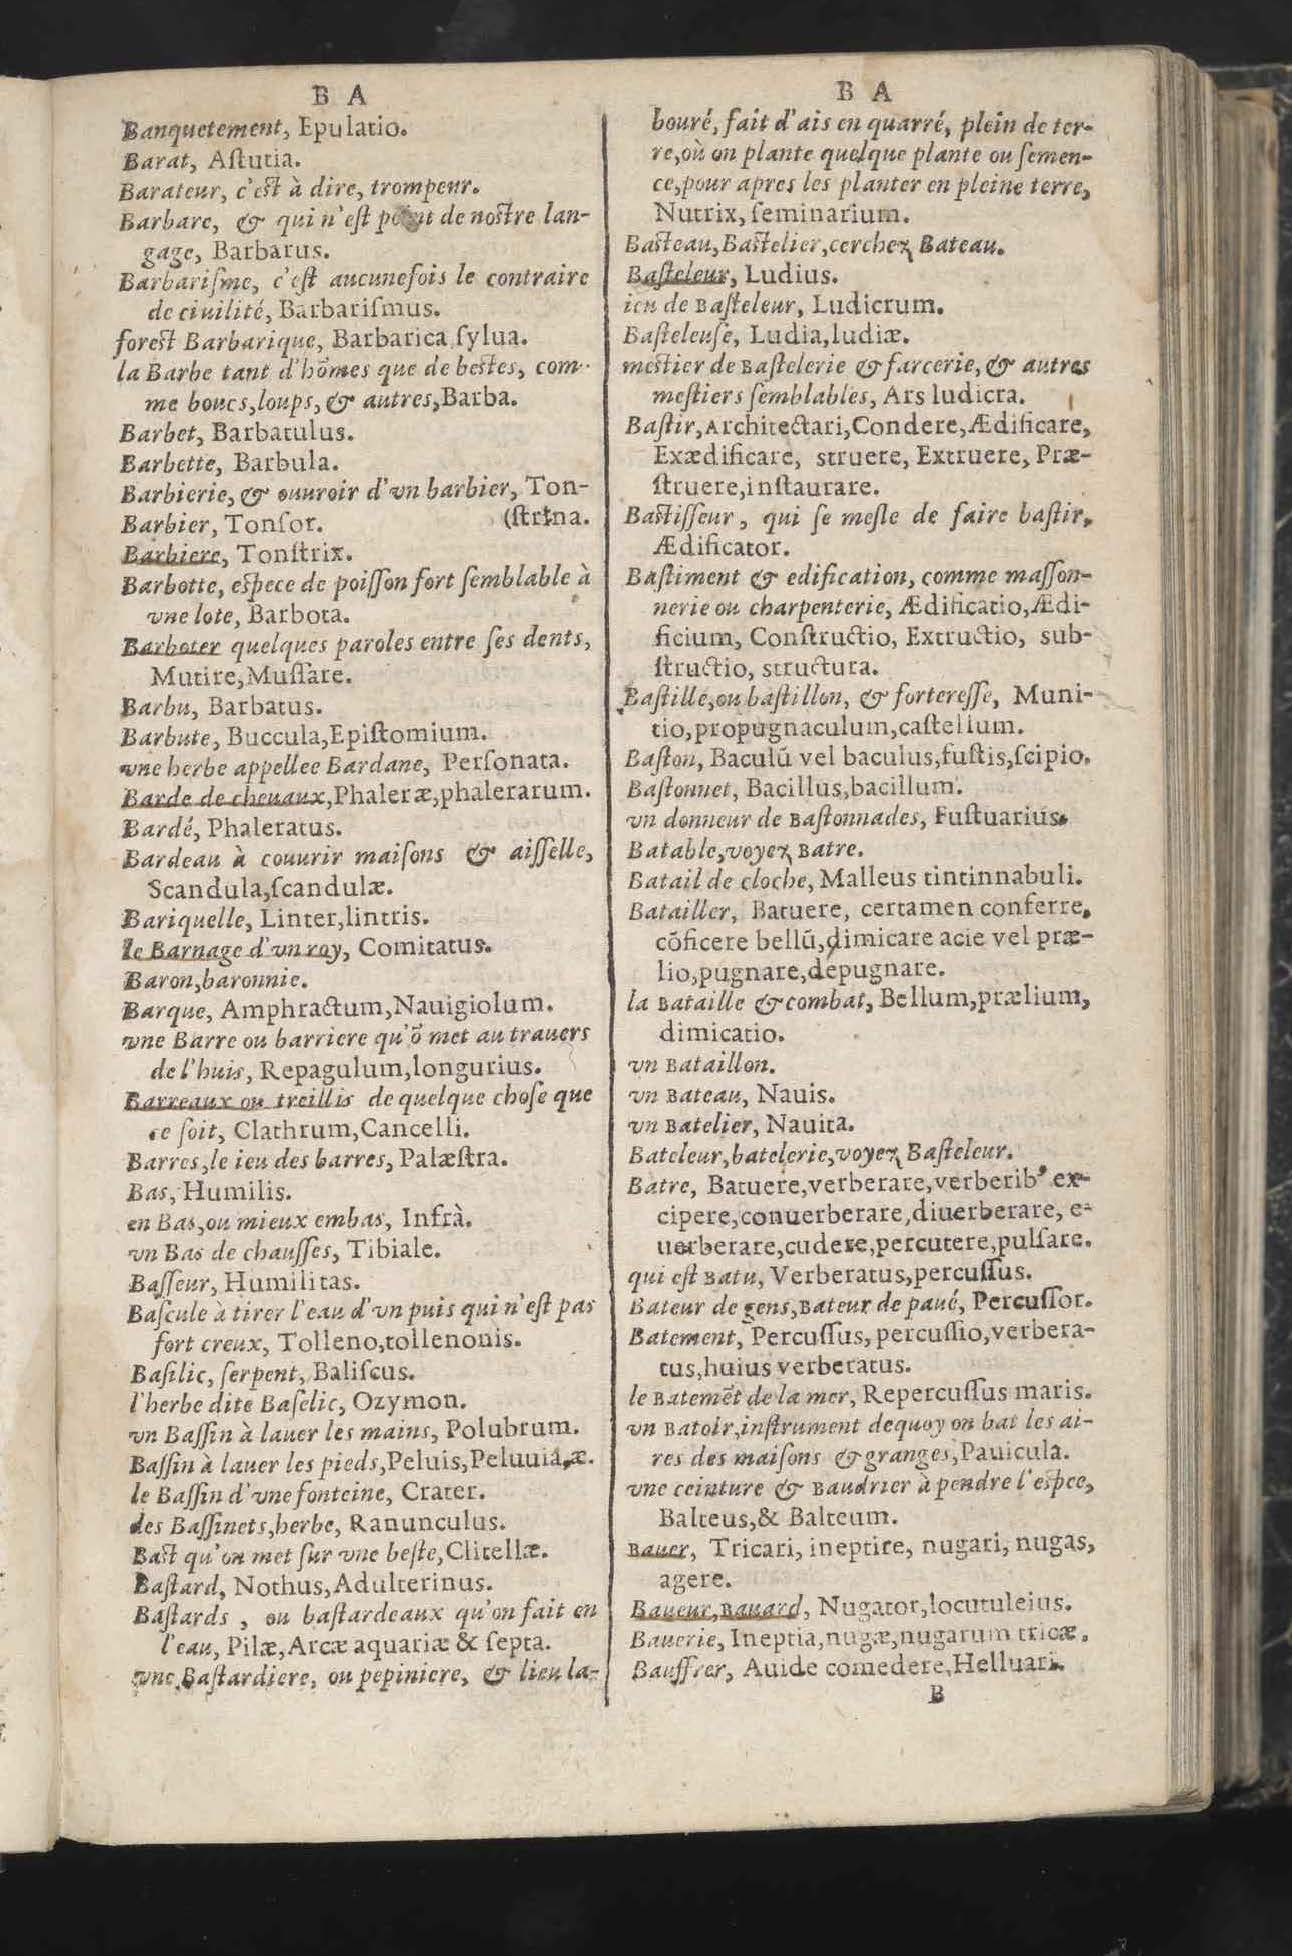 B A
Banquetement, Epulatio.
Barat, Aſtutia.
Barateur, c'eſt à dire, trompeur.
Barbare, & qui n'eſt point de noſtre lan-
gage, Barbarus.
Barbariſme, c'eſt aucunefois le contraire
de ciuilité, Barbariſmus.
foreſt Barbarique, Barbarica ſylua.
la Barbe tant d'hõmes que de beſtes, com-
me boucs,loups, & autres,Barba.
Barbet, Barbatulus.
Barbette, Barbula.
Barbierie, & ouuroir d'vn barbier, Ton-
Barbier, Tonſor. (ſtrina.
Barbiere, Tonſtrix.
Barbotte, eſpece de poiſſon fort ſemblable à
vne lote, Barbota.
Barboter quelques paroles entre ſes dents,
Mutire,Muſſare.
Barbu, Barbatus.
Barbute, Buccula,Epiſtomium.
vne herbe appellee Bardane, Perſonata.
Barde de cheuaux,Phaleræ,phalerarum.
Bardé, Phaleratus.
Bardeau à couurir maiſons & aiſſelle,
Scandula,ſcandulæ.
Bariquelle, Linter,lintris.
le Barnage d'vn roy, Comitatus.
Baron,baronnie.
Barque, Amphractum,Nauigiolum.
vne Barre ou barriere qu'õ met au trauers
de l'huis, Repagulum,longurius.
Barreaux ou treillis de quelque choſe que
ce ſoit, Clathrum,Cancelli.
Barres,le ieu des barres, Palæſtra.
Bas, Humilis.
en Bas,ou mieux embas, Infrà.
vn Bas de chauſſes, Tibiale.
Baſſeur, Humilitas.
Baſcule à tirer l'eau d'vn puis qui n'eſt pas
fort creux, Tolleno,tollenonis.
Baſilic, ſerpent, Baliſcus.
l'herbe dite Baſelic, Ozymon.
vn Baſſin à lauer les mains, Polubrum.
Baſſin à lauer les pieds,Peluis,Peluuia,æ.
le Baſſin d'vne fonteine, Crater.
des Baſſinets,herbe, Ranunculus.
Baſt qu'on met ſur vne beſte,Clitellæ.
Baſtard, Nothus,Adulterinus.
Baſtards , ou baſtardeaux qu'on fait en
l'eau, Pilæ,Arcæ aquariæ & ſepta.
vne Baſtardiere, ou pepiniere, & lieu la-
B A
bouré, fait d'ais en quarré, plein de ter-
re,où on plante quelque plante ou ſemen-
ce,pour apres les planter en pleine terre,
Nutrix, ſeminarium.
Baſteau,Baſtelier,cerchez Bateau.
Baſteleur, Ludius.
ieu de Baſteleur, Ludicrum.
Baſteleuſe, Ludia,ludiæ.
meſtier de Baſtelerie & farcerie, & autres
meſtiers ſemblables, Ars ludicra.
Baſtir,Architectari,Condere,Ædificare,
Exædificare, struere, Extruere, Præ-
ſtruere,inſtaurare.
Baſtiſſeur , qui ſe meſle de faire baſtir,
Ædificator.
Baſtiment & edification, comme maſſon-
nerie ou charpenterie, Ædificatio,Ædi-
ficium, Conſtructio, Extructio, sub-
ſtructio, structura.
Baſtille,ou baſtillon, & fortereſſe, Muni-
tio,propugnaculum,caſtellum.
Baſton, Baculũ vel baculus,fuſtis,ſcipio.
Baſtonnet, Bacillus,bacillum.
vn donneur de Baſtonnades, Fuſtuarius.
Batable,voyez Batre.
Batail de cloche, Malleus tintinnabuli.
Batailler, Batuere, certamen conferre,
cõficere bellũ,dimicare acie vel præ-
lio,pugnare,depugnare.
la Bataille & combat, Bellum,prælium,
dimicatio.
vn Bataillon.
vn Bateau, Nauis.
vn Batelier, Nauita.
Bateleur,batelerie,voyez Baſteleur.
Batre, Batuere,verberare,verberibꝰ ex-
cipere,conuerberare,diuerberare, e-
uerberare,cudere,percutere,pulſare.
qui eſt Batu, Verberatus,percuſſus.
Bateur de gens,Bateur de paué, Percuſſor.
Batement, Percuſſus, percuſſio,verbera-
tus,huius verberatus.
le Batemẽt de la mer, Repercuſſus maris.
vn Batoir,inſtrument dequoy on bat les ai-
res des maiſons & granges,Pauicula.
vne ceinture & Baudrier à pendre l'eſpee,
Balteus,& Balteum.
Bauer, Tricari, ineptire, nugari, nugas,
agere.
Baueur,Bauard, Nugator,locutuleius.
Bauerie, Ineptia,nugæ,nugarum tricæ.
Bauffrer, Auide comedere,Helluari.
B